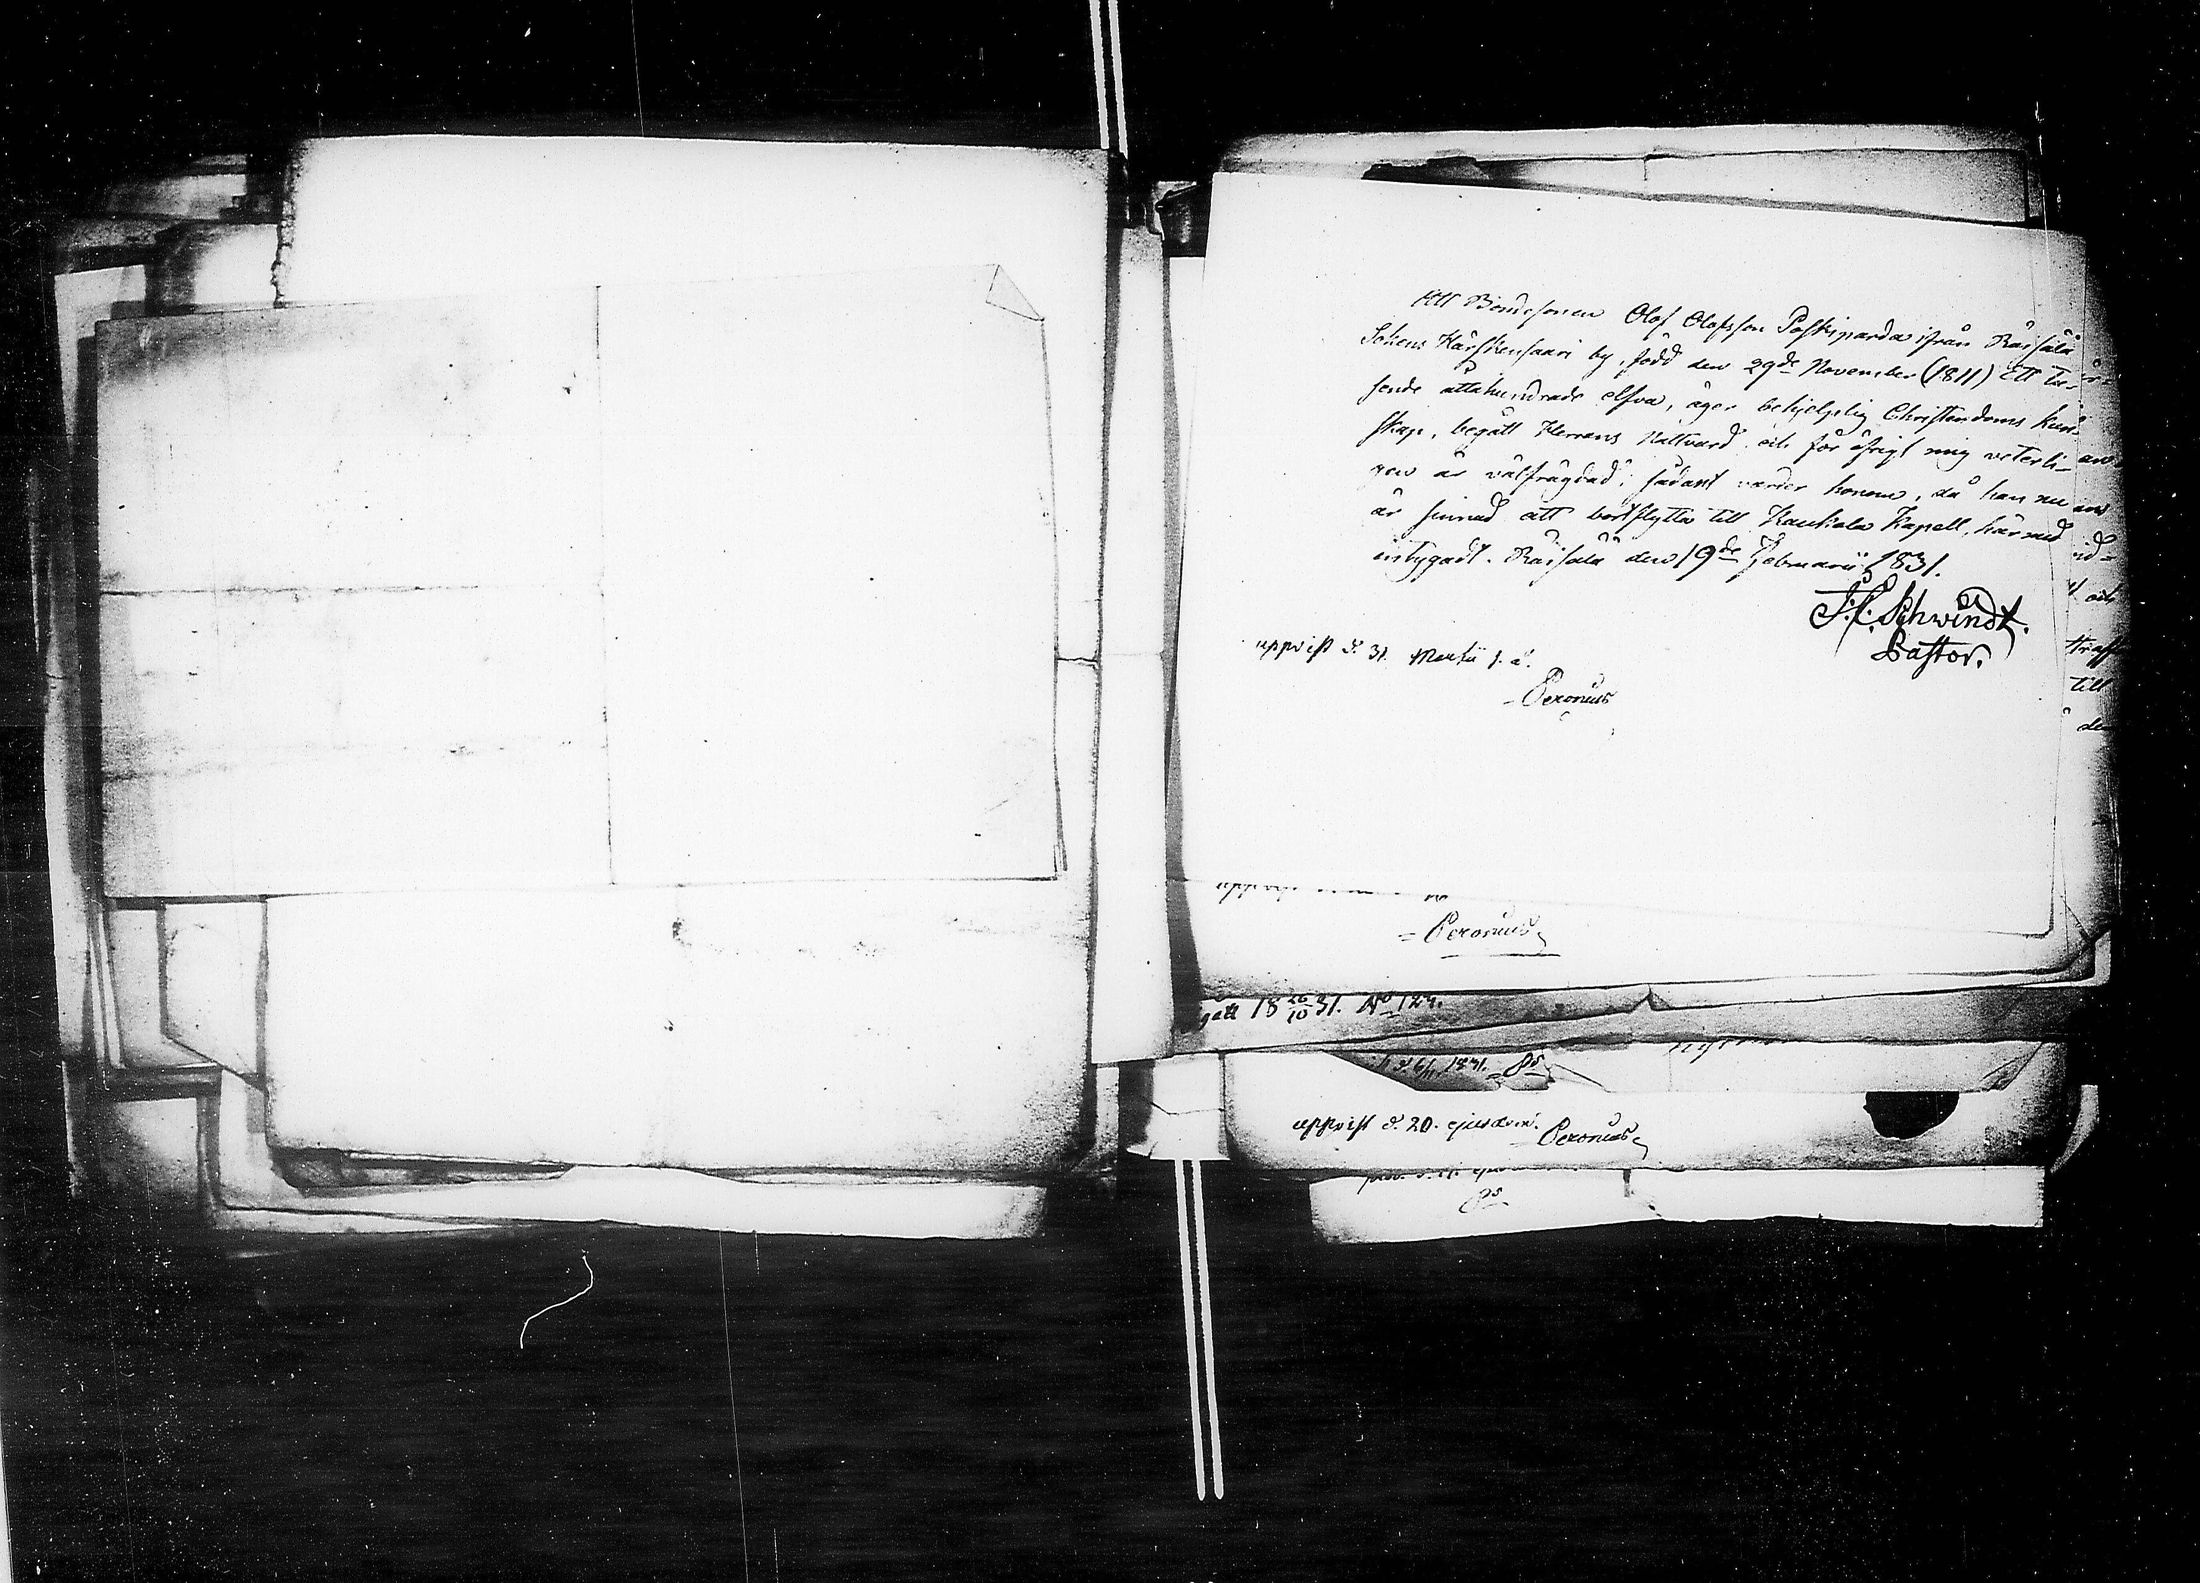 Att Bondesonen Olof Olofsson Poskiparda ifrån Räisälä
Sokens Härskensaari by, född den 29de November (1811) Ett tu-
sende åttahundrade elfva, äger behjelplig Christendoms kun-
skap, begått Herrans Nattvard och för öfrigt mig veterli-
gen är välfrägdad; sådant varder honom, då han nu
är sinnad att bortflytta till Kaukola Kapell, härmed
intygadt. Räisälä den 19de Februarii 1831.
Schwindt.
Pastor.
uppvist d. 31. Martii s. å.
Peronius
Peronius
gått 18 26/10 31. No 124.
1831. Ps
uppvist d. 20. ejusdem.
Peronius
Ps
till